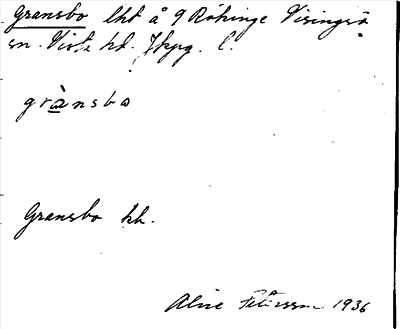 Gransbo lht å 9 Rökinge Visingsö
sn. Vista hd. Jkpg. l.
grànsbo
Gransbo kk.
Alice 1936